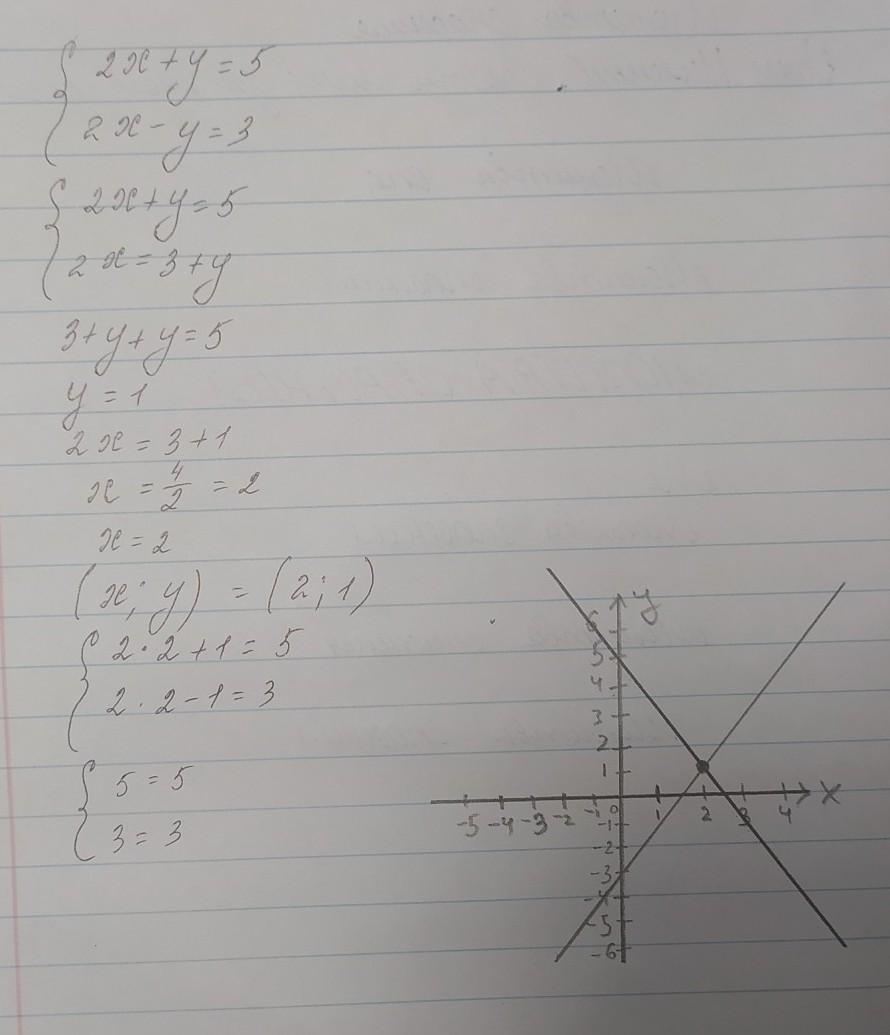 { 2x + y = 5
2x - y = 3
{ 2x + y = 5
2x = 3 + y
3 + y + y = 5
y = 1
2x = 3 + 1
x = 4/2 = 2
x = 2
(x; y) = (2; 1)
{ 2 · 2 + 1 = 5
2 · 2 - 1 = 3
{ 5 = 5
3 = 3
y
6
5
4
3
2
1
-5 -4 -3 -2 -1 0 1 2 3 4 x
-1
-2
-3
-4
-5
-6